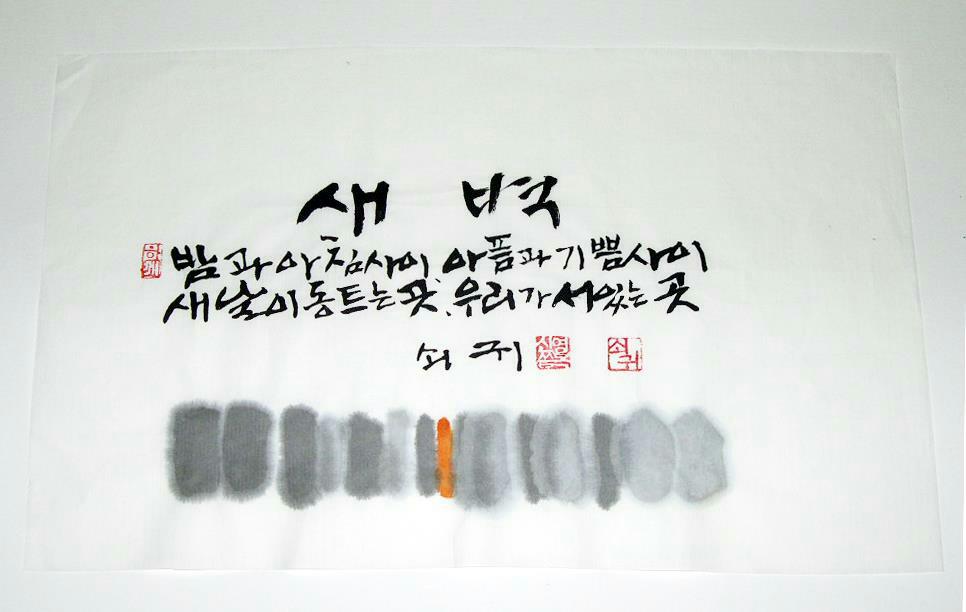 새 벽
밤과 아침사이 아픔과 기쁨사이
새날이 동트는 곳, 우리가 서있는 곳
쇠귀
쇠귀